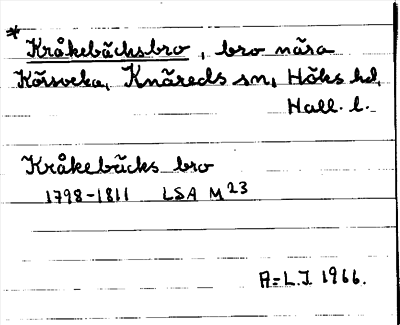 * Kråkebäcksbro, bro nära
Körsveka, Knäreds sn, Höks hd,
Hall. l.
Kråkebäcks bro
1798-1811 LSA M 23
A-L.J. 1966.